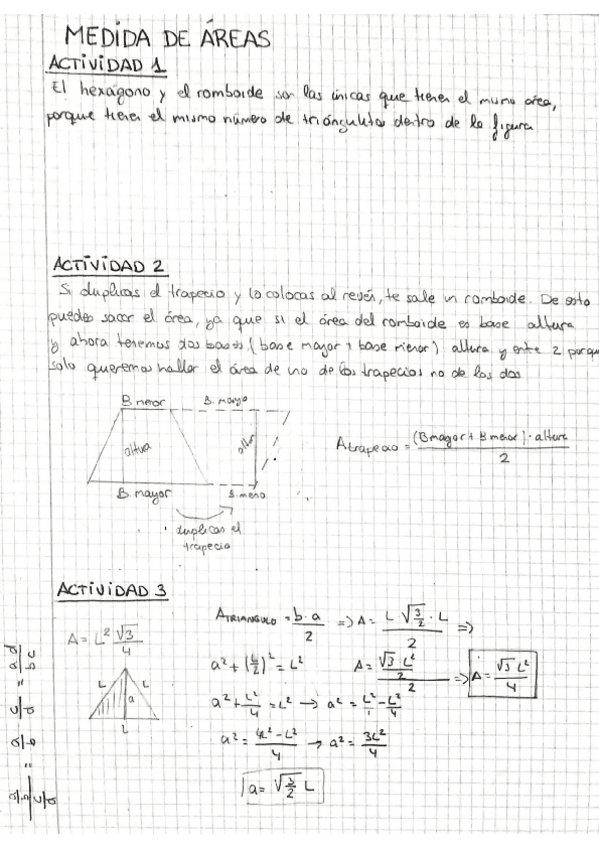 MEDIDA DE ÁREAS
ACTIVIDAD 1
El hexágono y el romboide son las únicas que tienen el mismo área,
porque tienen el mismo número de triángulitos dentro de la figura
ACTIVIDAD 2
Si duplicas el trapecio y lo colocas al revés, te sale un romboide. De esto
puedes sacar el área, ya que si el área del romboide es base altura
y ahora tenemos dos bases (base mayor y base menor) altura y entre 2 porque
solo queremos hallar el área de uno de los trapecios no de los dos
B menor B. mayo
altura altu
B mayor B. meno
duplicas el
trapecio
Atrapecio = (Bmayor + Bmenor) · altura / 2
ACTIVIDAD 3
A = L² √3 / 4
L L a L
ATRIANGULO = b · a / 2 => A = L √3/2 · L / 2 =>
a² + (L/2)² = L² A = √3/2 L² / 2 => A = √3 L² / 4
a² + L²/4 = L² → a² = L²/1 - L²/4
a² = 4L² - L² / 4 → a² = 3L²/4
a = √3/2 L